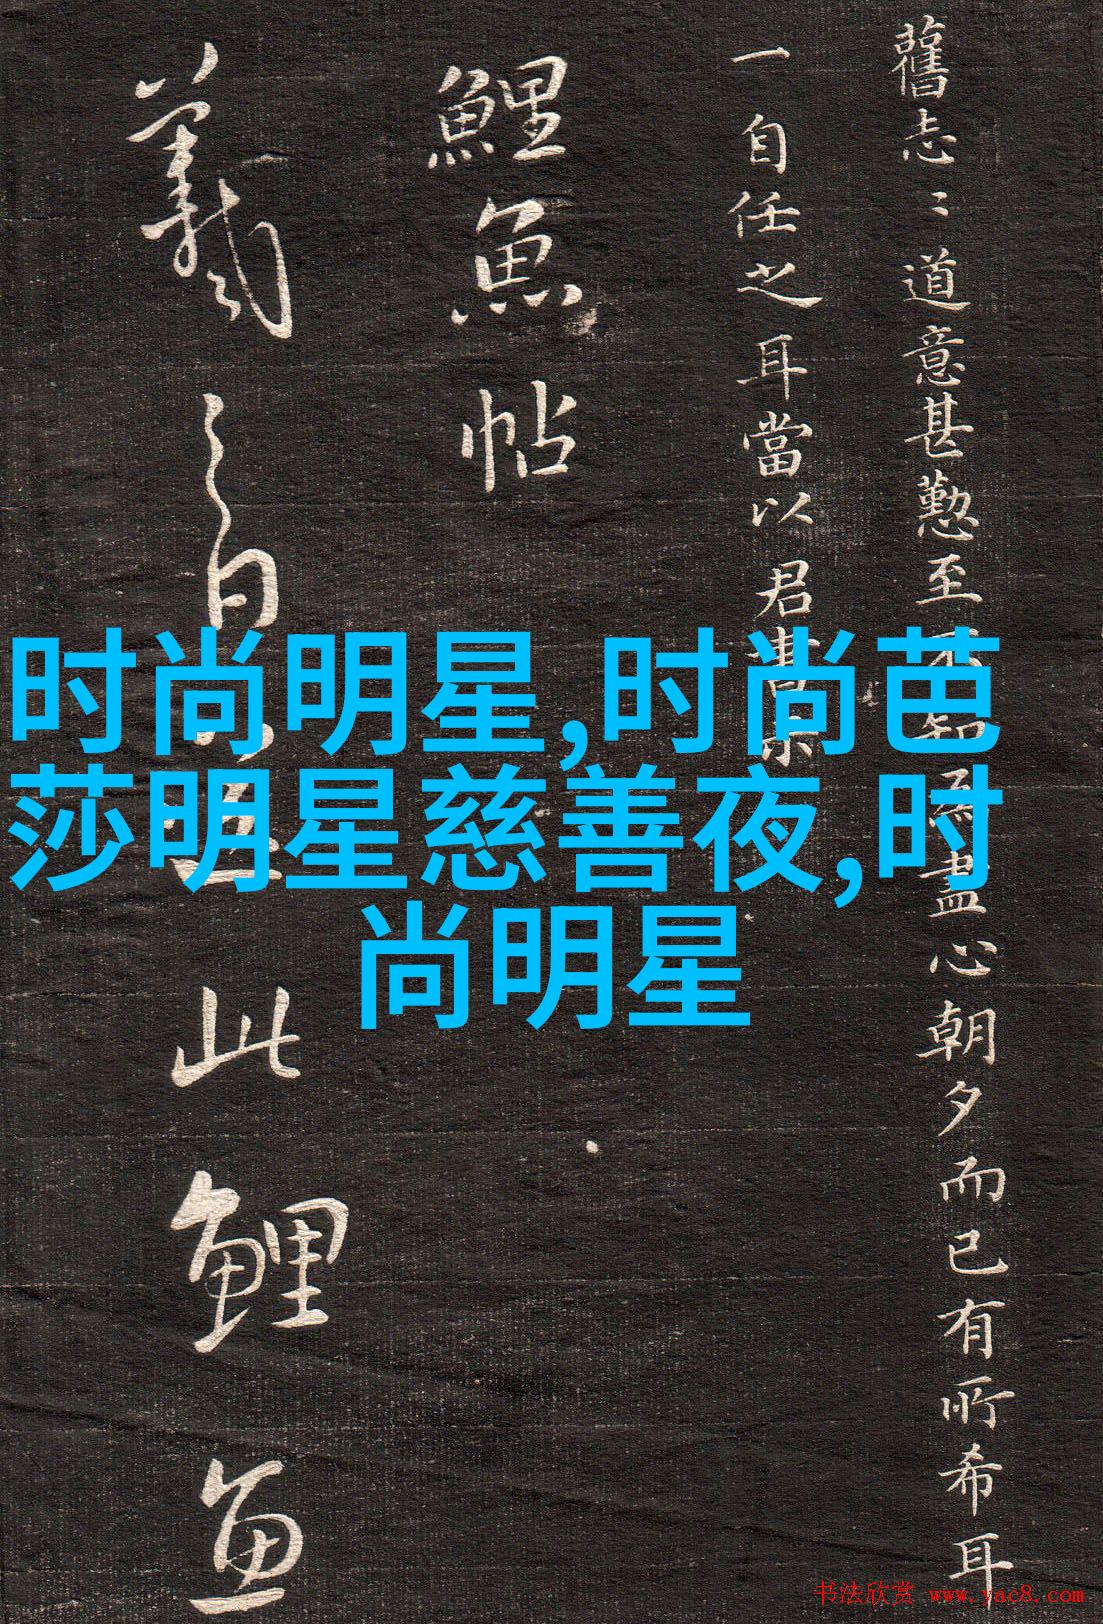 舊志〻道意甚懃至知盡心朝夕而已有所希耳
一自任之耳當以君書
鯉魚帖
羲之白此鯉魚
时尚明星,时尚芭
莎明星慈善夜,时
尚明星
书法欣赏 www.yac8.com